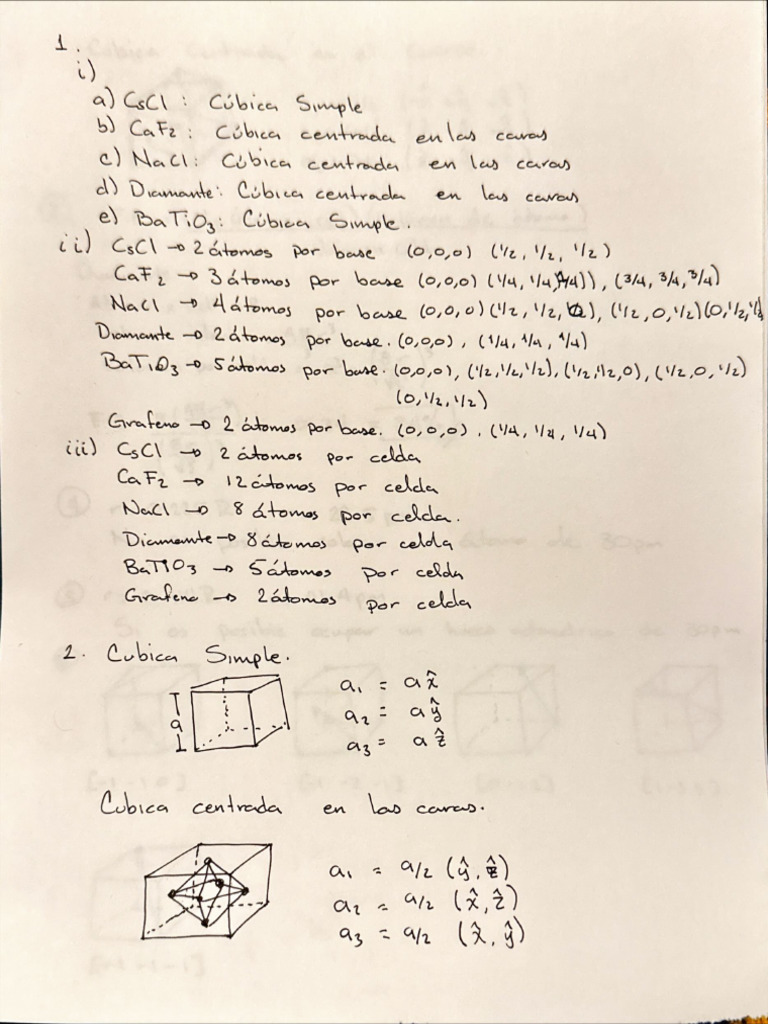 1.
i)
a) CsCl : Cúbica Simple
b) CaF2 : Cúbica centrada en las caras
c) NaCl : Cúbica centrada en las caras
d) Diamante : Cúbica centrada en las caras
e) BaTiO3 : Cúbica Simple.
ii) CsCl → 2 átomos por base (0,0,0) (1/2, 1/2, 1/2)
CaF2 → 3 átomos por base (0,0,0) (1/4, 1/4, 1/4)), (3/4, 3/4, 3/4)
NaCl → 4 átomos por base (0,0,0) (1/2, 1/2, ), (1/2, 0, 1/2) (0, 1/2, 1/2
Diamante → 2 átomos por base. (0,0,0) , (1/4, 1/4, 1/4)
BaTiO3 → 5 átomos por base. (0,0,0), (1/2, 1/2, 1/2), (1/2, 1/2, 0), (1/2, 0, 1/2)
(0, 1/2, 1/2)
Grafeno → 2 átomos por base. (0,0,0) , (1/4, 1/4, 1/4)
iii) CsCl → 2 átomos por celda
CaF2 → 12 átomos por celda
NaCl → 8 átomos por celda.
Diamante → 8 átomos por celda
BaTiO3 → 5 átomos por celda
Grafeno → 2 átomos por celda
2. Cubica Simple.
a
a1 = a x̂
a2 = a ŷ
a3 = a ẑ
Cubica centrada en las caras.
a1 = a/2 (ŷ, ẑ)
a2 = a/2 (x̂, ẑ)
a3 = a/2 (x̂, ŷ)